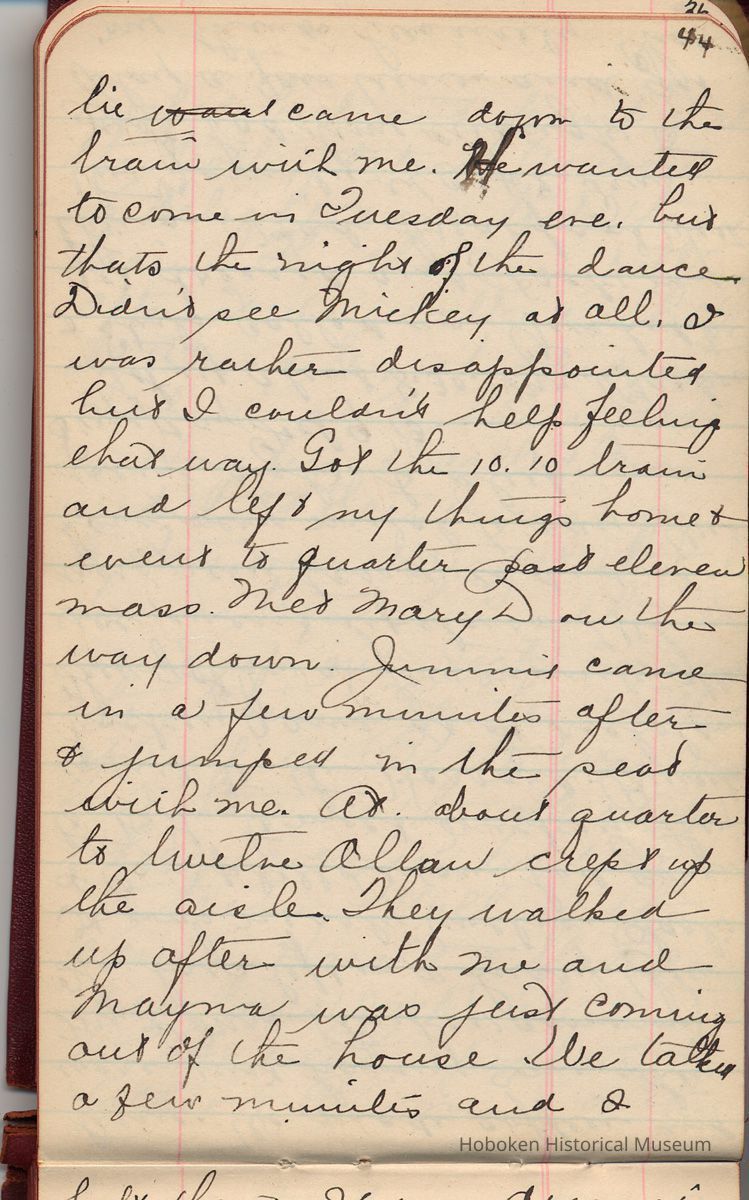 26
44
lie came down to the
train with me. He wanted
to come in Tuesday eve. but
thats the night of the dance.
Didn't see Mickey at all. I
was rather disappointed
but I couldn't help feeling
that way. Got the 10.10 train
and left my things home &
went to quarter past eleven
mass. Met Mary D on the
way down. Jimmie came
in a few minutes after
& jumped in the seat
with me. At. about quarter
to twelve Allan crept up
the aisle. They walked
up after with me and
Mayma was just coming
out of the house. We talked
a few minutes and I
Hoboken Historical Museum